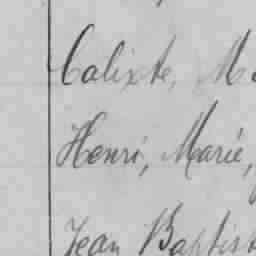 Calixte, M
Henri, Marie,
Jean Baptist